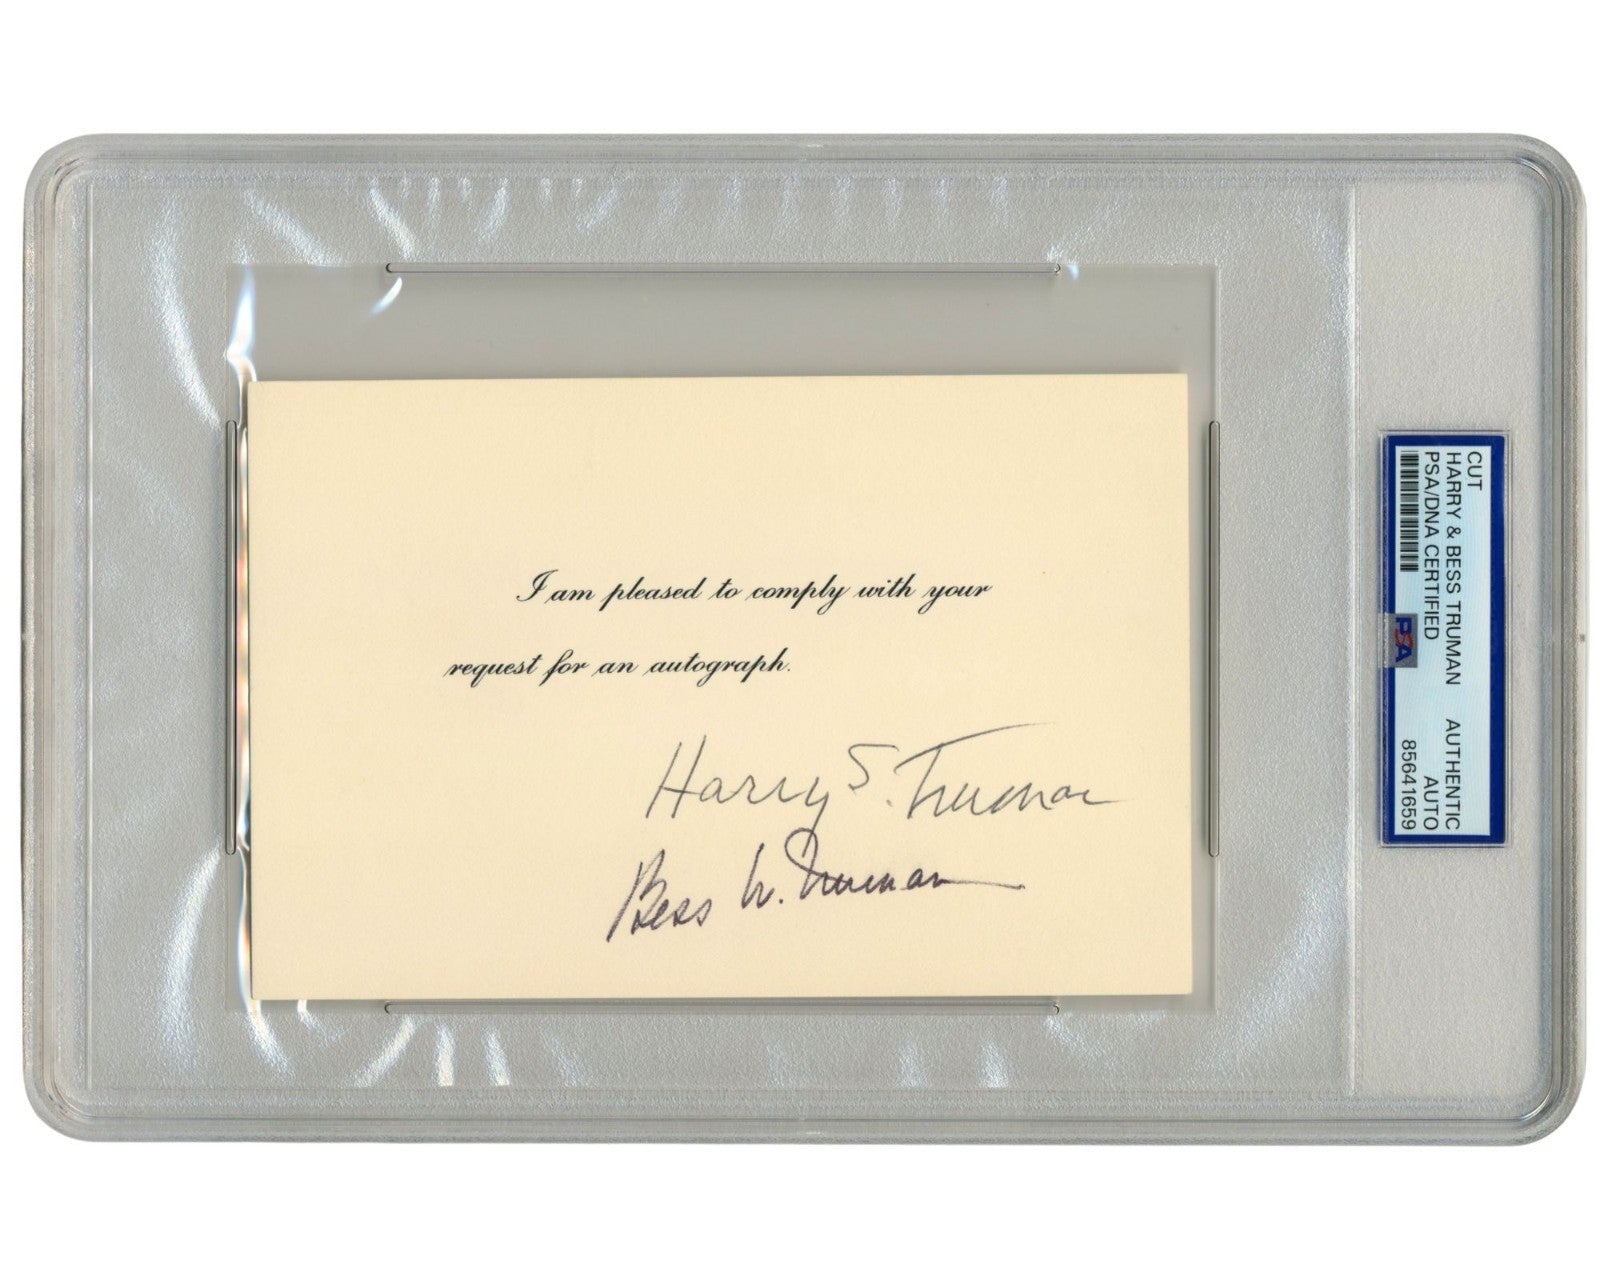 I am pleased to comply with your
request for an autograph.
Harry S. Truman
Bess W. Truman
CUT
HARRY & BESS TRUMAN AUTHENTIC
PSA/DNA CERTIFIED AUTO
85641659
PSA